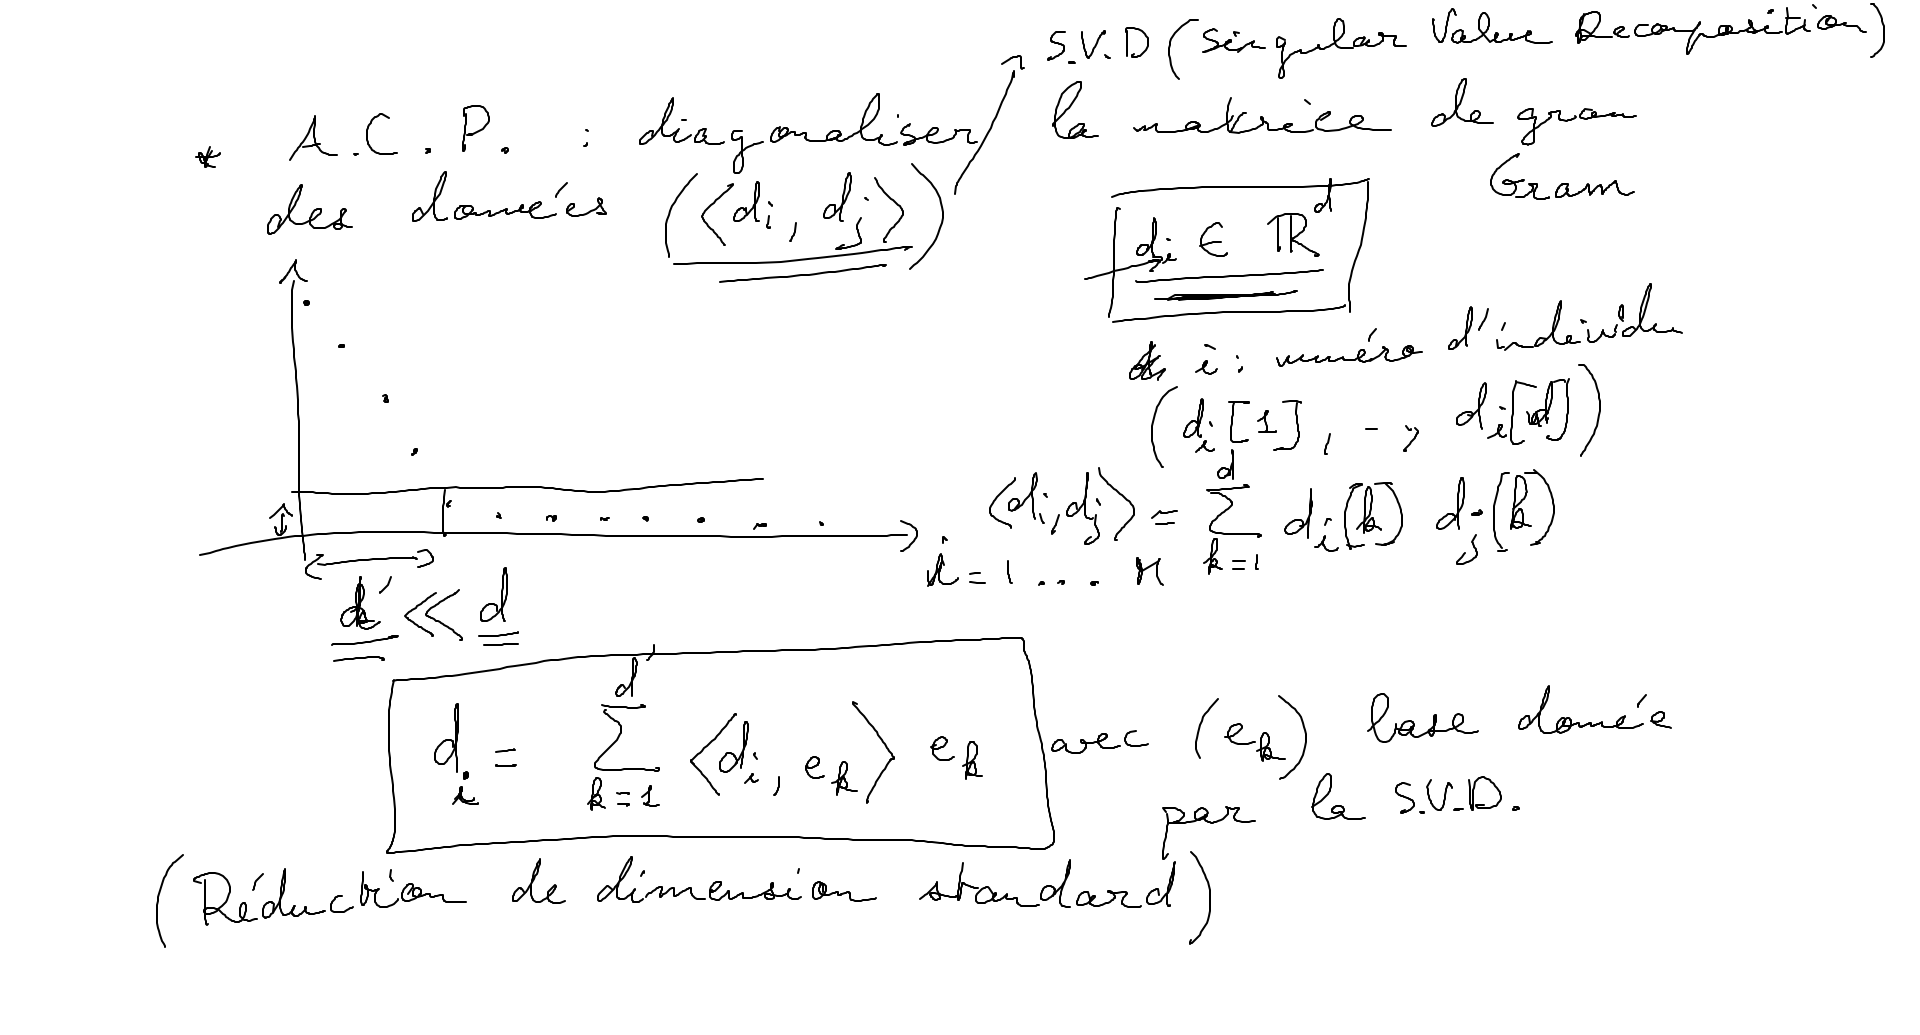 S.V.D (Singular Value Decomposition)
* A.C.P. : diagonaliser la matrice de gram
Gram
des données (⟨di, dj⟩)
di ∈ ℝ^d
i : numéro d'individu
(di[1], -, di[d])
⟨di,dj⟩ = ∑_{k=1}^{d} di[k] dj[k]
i = 1 ... n
d' << d
d_i = ∑_{k=1}^{d'} ⟨di, e_k⟩ e_k avec (e_k) base donnée
par la S.V.D.
(Réduction de dimension standard)